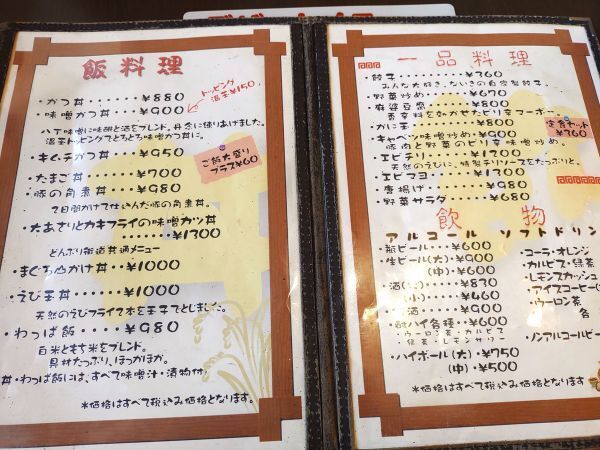 飯料理
・かつ丼・・・・・・¥880
・味噌かつ丼・・・・¥900
トッピング
温玉¥150
八丁味噌に味噌と酒をブレンド。丹念に練りあげました。
温玉トッピングでとろとろ味噌かつ丼に。
・キムチかつ丼・・・¥950
ご飯大盛り
プラス¥60
・たまご丼・・・・・¥700
・豚の角煮丼・・・・¥980
2日間かけて仕込んだ豚の角煮丼。
・大あさりとカキフライの味噌カツ丼
・・・・・・¥1300
どんぶり街道共通メニュー
・まぐろ山かけ丼・・¥1000
・えび玉丼・・・・・¥1000
天然のえびフライ2本を玉子でとじました。
・わっぱ飯・・・・・¥980
白米ともち米をブレンド。
具材たっぷり、ほっかほか。
丼・わっぱ飯には、すべて味噌汁・漬物付
*価格はすべて税込み価格となります。
一品料理
・餃子・・・・・・・¥360
みんな大好き、ないきの自家製餃子。
・野菜炒め・・・・・¥670
・麻婆豆腐・・・・・¥800
香辛料を効かせたピリ辛マーボー
・かに玉・・・・・・¥800
定食セット
¥360
・キャベツ味噌炒め・¥900
豚肉と野菜のピリ辛味噌炒め。
・エビチリ・・・・・¥1300
天然のえびに、特製チリソースをたっぷりと。
・エビマヨ・・・・・¥1300
・唐揚げ・・・・・・¥980
・野菜サラダ・・・・¥680
飲物
アルコール
・瓶ビール・・¥600
・生ビール(大)・¥900
(中)・¥600
・酒(大)・・¥830
(小)・・¥460
・酎ハイ各種・・¥600
ウーロン茶・カルピス
緑茶・レモンサワー
・ハイボール(大)・¥750
(中)・¥500
ソフトドリン
・コーラ・オレンジ
・カルピス・緑茶
・レモンスカッシュ
・アイスコーヒー
・ウーロン茶
各
・ノンアルコールビー
*価格はすべて税込み価格となります